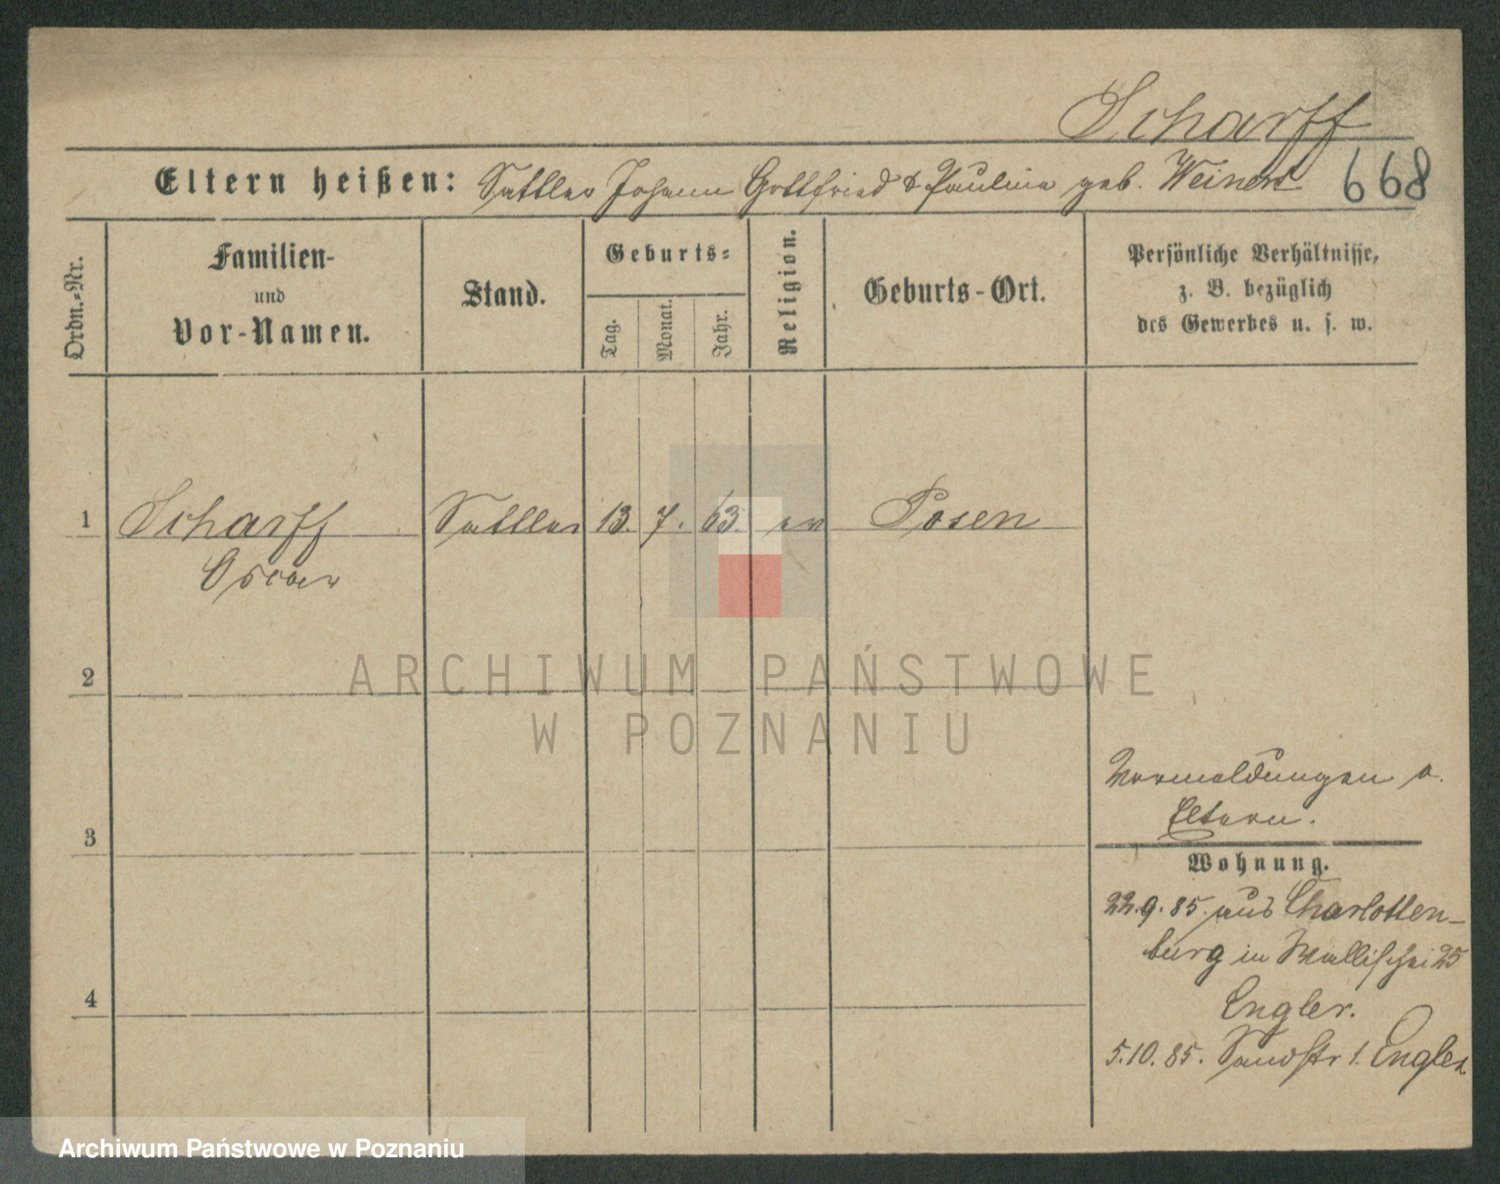 Scharff
Eltern heißen: Sattler Johann Gottfried & Paulina geb. Weinert
668
Ordn.-Nr.
Familien-
und
Vor-Namen.
Stand.
Geburts-
Tag.
Monat.
Jahr.
Religion.
Geburts-Ort.
Persönliche Verhältnisse,
z. B. bezüglich
des Gewerbes u. s. w.
1 Scharff Sattler 13. 7. 63. ev Posen
Oscar
2
ARCHIWUM PAŃSTWOWE
W POZNANIU
3
Vormeldungen a.
Eltern.
Wohnung.
22.9.85. aus Charlotten-
burg in Wallischei 25
Engler.
4
5.10.85. Sandstr 1. Engler
Archiwum Państwowe w Poznaniu